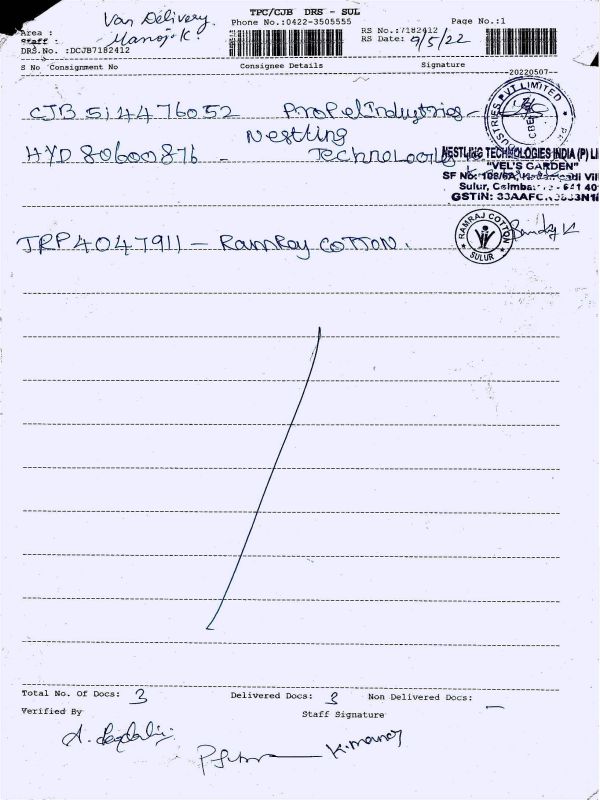 TPC/CJB DRS - SUL
Van Delivery.
Phone No.:0422-3505555
Page No.:1
Area :
Manoj.K.
RS No.:7182412
Staff :
RS Date: 9/5/22
DRS.No. :DCJB7182412
S No Consignment No Consignee Details Signature
--20220507--
CJB 514476052 Propel Industries -
VT LIMITED
Nestling
HYD 80600876 - Technologies
NESTLING TECHNOLOGIES INDIA (P) LI
"VEL'S GARDEN"
SF No: 108/6A,
Sulur, Coimba
GSTIN: 33AAFC
JRP4047911 - RamRaj COTTON.
RAMRAJ COTTON
SULUR
Total No. Of Docs: 3 Delivered Docs: 3 Non Delivered Docs: —
Verified By
Staff Signature
K.manoj